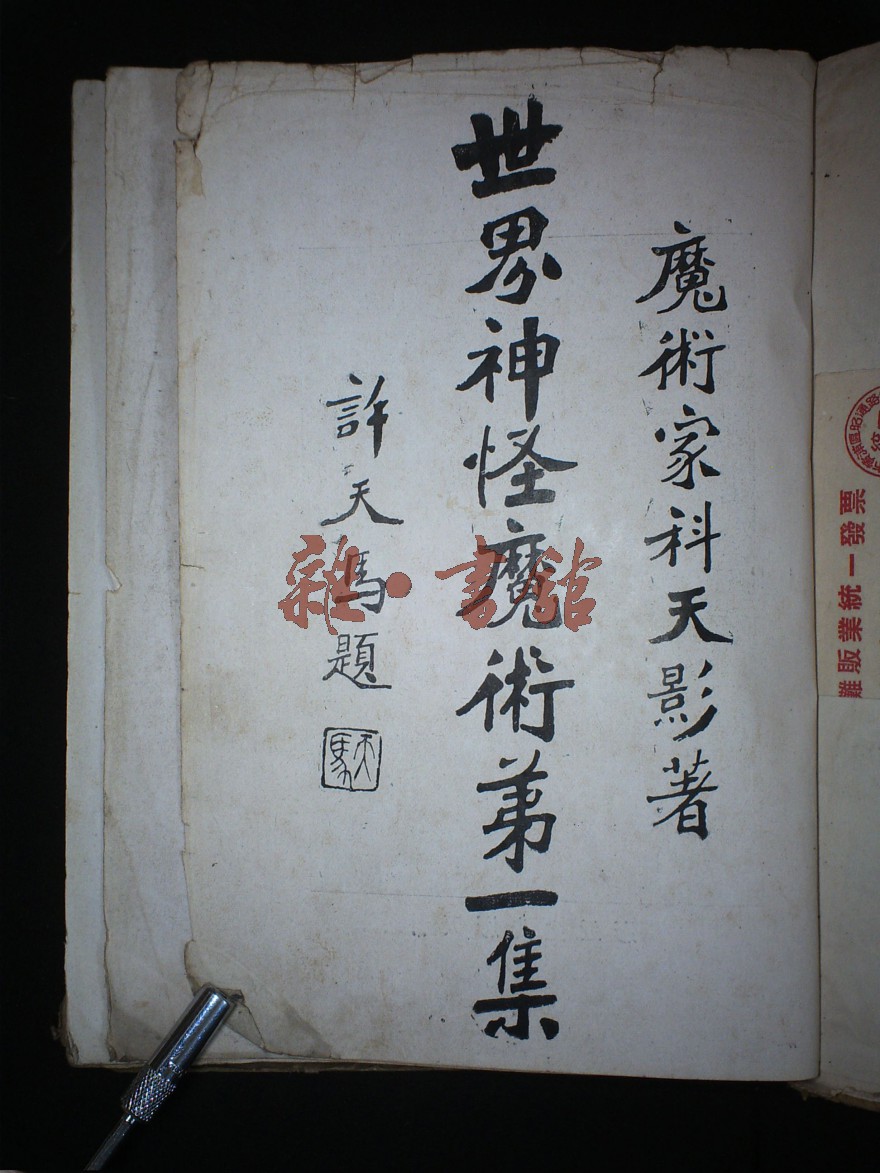 魔術家科天影著
世界神怪魔術第一集
許天馬題
天馬
雜·書館
雜販業統一發票